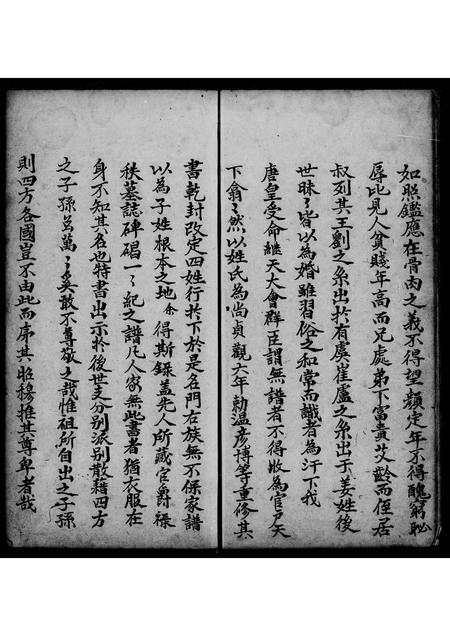 如照鑑應在骨肉之義不得望顏定年不得醜窮恥
辱比見人貧賤年高而兄處弟下富貴艾齡而侄居
叔列其王劉之系出於有虞崔盧之系出于姜姓後
世昧〻皆以為婚雖習俗之和常而識者為汗下我
唐皇受命繼天大會群臣謂無譜者不得收為官尹天
下翕〻然以姓氏為尚貞觀六年勅温彦博等重修其
書乾封改定四姓行於下於是名門右族無不保家譜
以為子姓根本之地余得斯錄蓋先人所藏官爵祿
秩墓誌碑碣一〻紀之譜凡人家無此書者猶衣服在
身不知其名也特書出示於後世支分别派别散藉四方
之子孫名萬〻奚敢不尊敬之哉惟祖所自出之子孫
則四方各國豈不由此而序其昭穆推其尊卑者哉